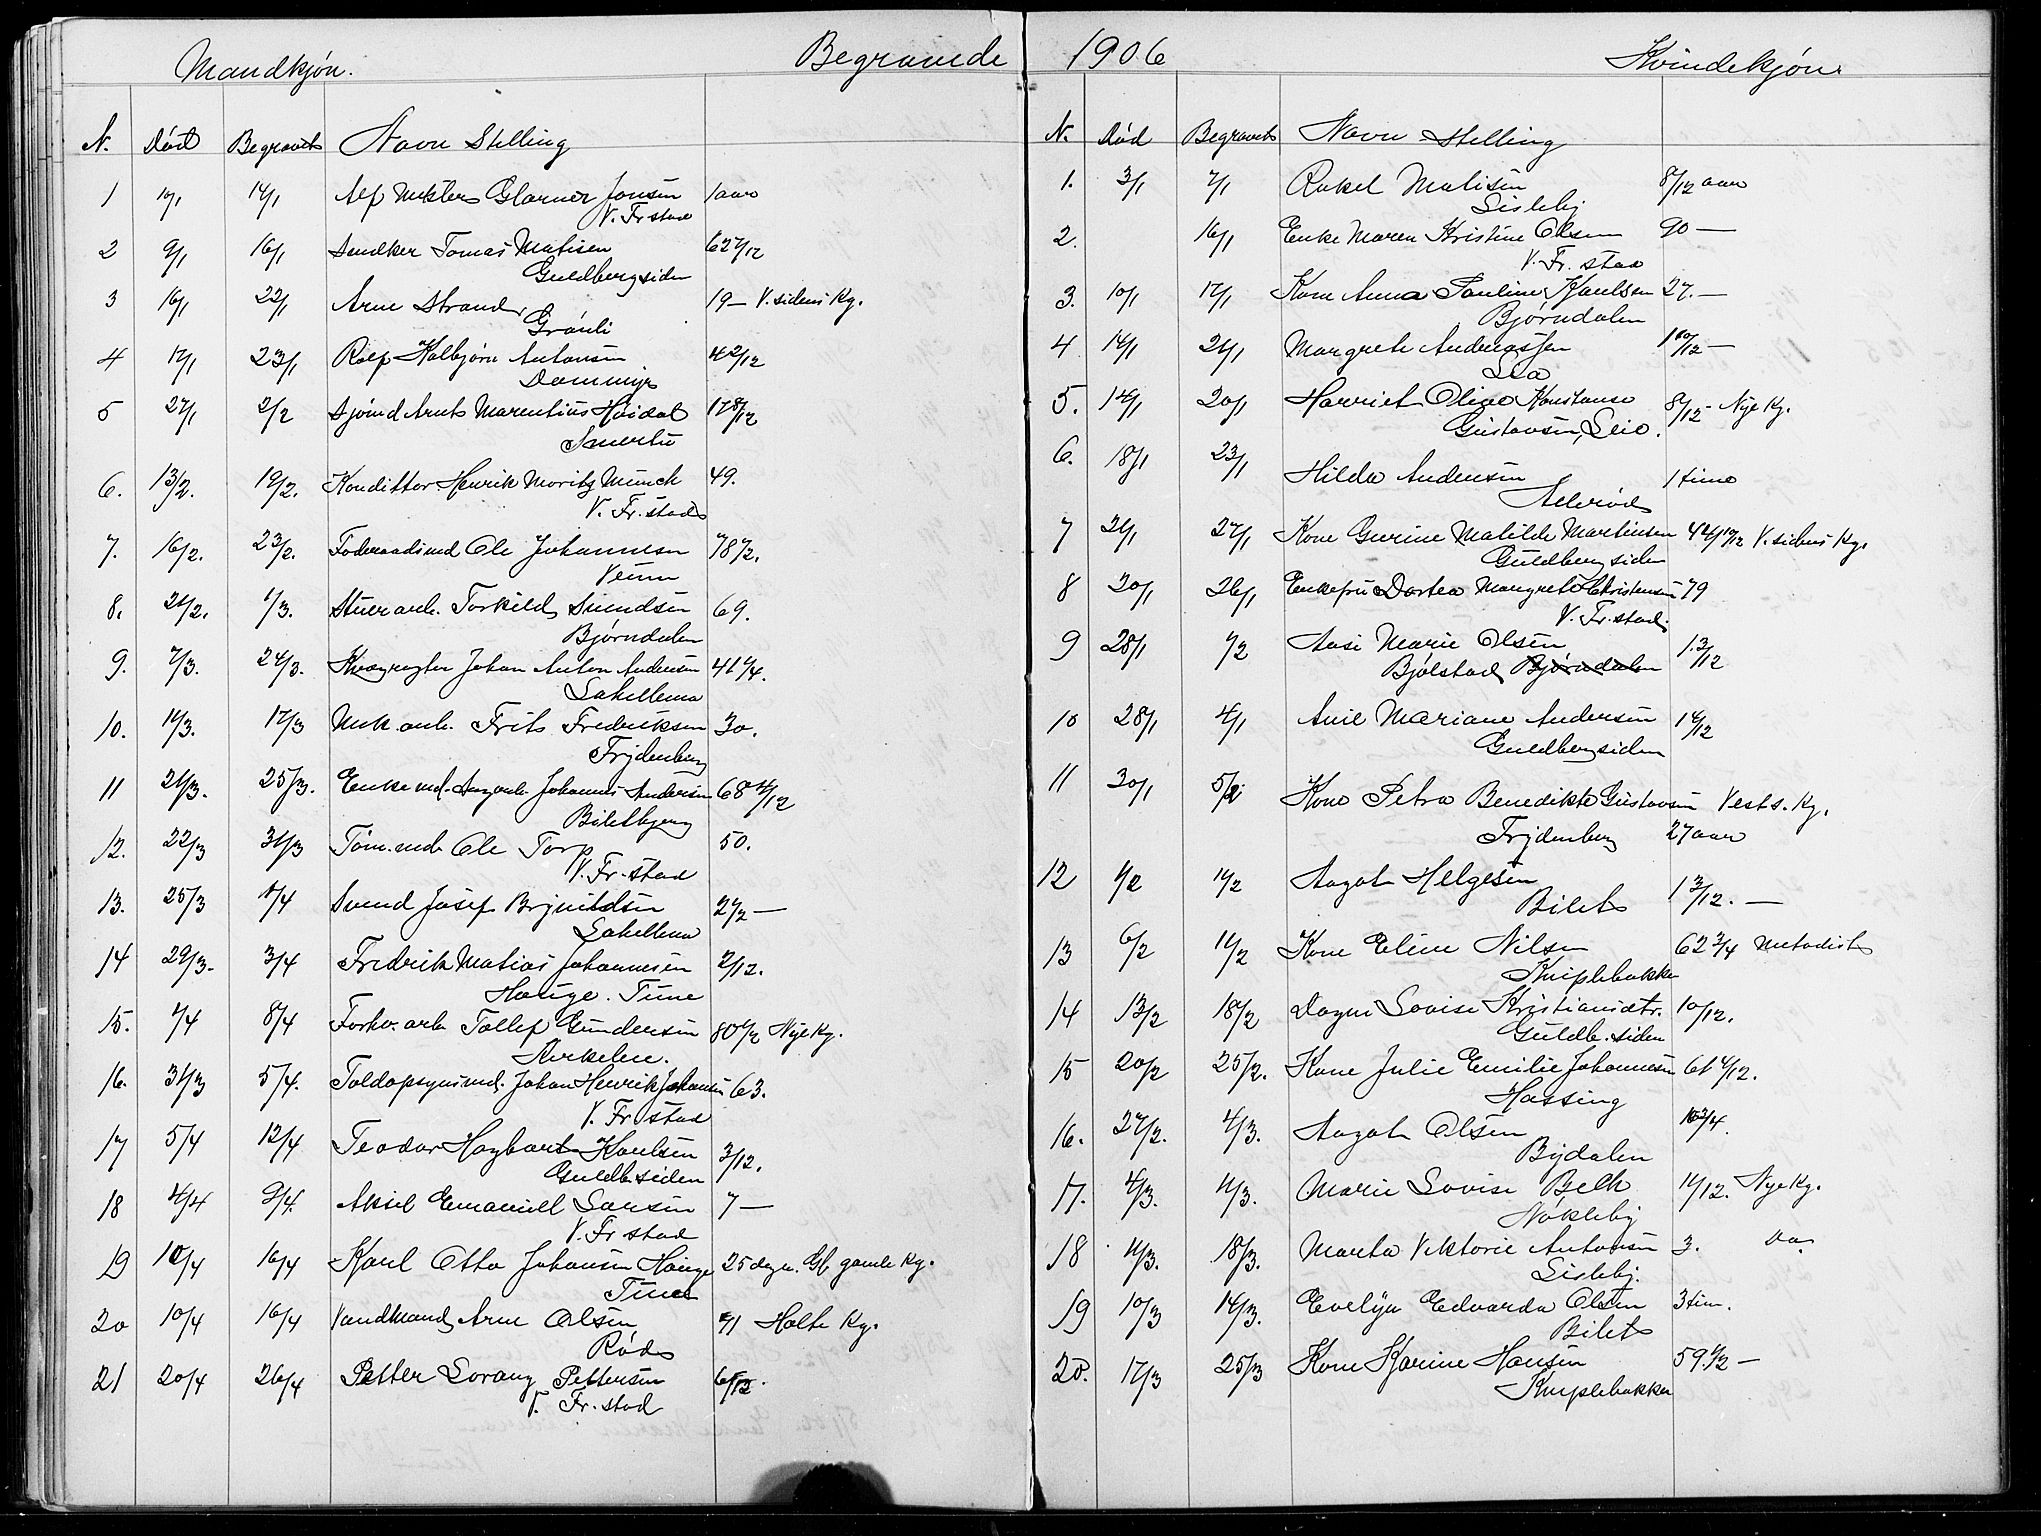 Mandkjøn. Begravede
N. Død Begravet Navn Stilling
1 14/1 Alf Glarner Jensen 1 aar
V. Fr.stad
2 9/1 16/1 Smelter Tomas Matisen 62
Guldbergsiden
3 16/1 22/1 Arne Strand 19 — V. sidens Kg.
Grønli
4 17/1 23/1 Antonsen 4 2/12
Dammyr
5 27/1 2/2 Marentius 17 8/12
6. 13/2. 19/2. Konditter Henrik Moritz Münch 49.
V. Fr. stad
7. 16/2. 23/2. Føderaadsmd Ole Johannesen 78 1/2.
Veum
8. 1/3. Stuerarb. Torkild Svendsen 69.
Bjørndalen
9. 7/3. 24/3. Johan Anton Andersen 41 1/4.
Lahellemo
10. 11/3. 17/3 Mek. arb. Frits Fredriksen 30.
Frydenberg
11 21/3. 25/3. Enkemd. Johannes Andersen 68 4/12
12. 22/3 31/3 Tøm.md. Ole Torp 50.
V. Fr. stad
13. 25/3 1/4 Svend Josef Brynildsen 2 1/2 —
Lahellemo
14 29/3. 3/4 Fredrik Matias Johannesen 2/12.
Hauge. Tune
15. 8/4 Forhv. arb. Tollef Gundersen 80 1/2 Nye Kg.
16. 31/3 5/4. Toldopsynsmd. Johan Henrik Johansen 63.
V. Fr stad
17 5/4 12/4 Teodor Hagbart Karlsen 3/12.
Guldb.siden
18 4/4 9/4. Aksel Emanuell Larsen 7 —
V. Fr stad
19 10/4 16/4 Karl Otto Johansen Hauge 25 dage. Gl. gamle Kg.
Tune
20 10/4 16/4 Vandmand Arne Olsen 71 Holte Kg.
Rød
21 20/4 26/4 Petter Lorang Pettersen 6/12.
V. Fr. stad
1906 Kvindekjøn.
N. Død Begravet Navn Stilling
1. 3/1 7/1 Rakel Matisen 8/12 aar
Lisleby
2. 16/1 Enke Maren Kristine Olsen 90 —
V. Fr. stad
3. 10/1 17/1 Kone Anna Pauline Karlsen 27. —
Bjørndalen
4 14/1 21/1 Margrete Andreassen 1 10/12 —
Leie
5. 14/1 20/1 Harriet Oline Konstanse 8/12 — Nye Kg.
Gustavsen, Leie.
6. 18/1 23/1 Hilda Andersen 1 time
7 21/1 27/1 Kone Gurine Matilde Martinsen V. sidens Kg.
Guldbergsiden
8 20/1 26/1 Enkefru Dortea Margrete Christensen 79
V. Fr. stad.
9 28/1 1/2 Aase Marie Olsen 1. 3/12
Bjølstad Bjørndalen
10 28/1 4/1 Mariane Andersen 14/12
Guldbergsiden
11 30/1 5/2 Kone Petra Benedikte Gustavsen Vests. Kg.
Frydenberg 27 aar
12 1/2 11/2 Aagot Helgesen 1 3/12. —
Bilet
13 6/2 11/2 Kone Eline Nilsen 62 3/4 Metodist
Kniplebakken
14 13/2 18/2 Dagny Lovise Kristiansdtr. 10/12.
Guldb. siden
15 20/2 25/2. Kone Julie Emilie Johannesen 61 4/12.
Hassing
16. 27/2. 4/3. Aagot Olsen
Bydalen
17. 4/3. 11/3. Marie Lovise Belk 11/12. Nye Kg.
Nøkleby
18 11/3. 18/3. Marta Viktorie Antonsen 3. Do.
Lisleby.
19 10/3 14/3. Evelyn Edvarda Olsen 3 tim.
Bilet
20. 17/3 25/3 Kone Karine Hansen 59. 1/2 —
Kniplebakken